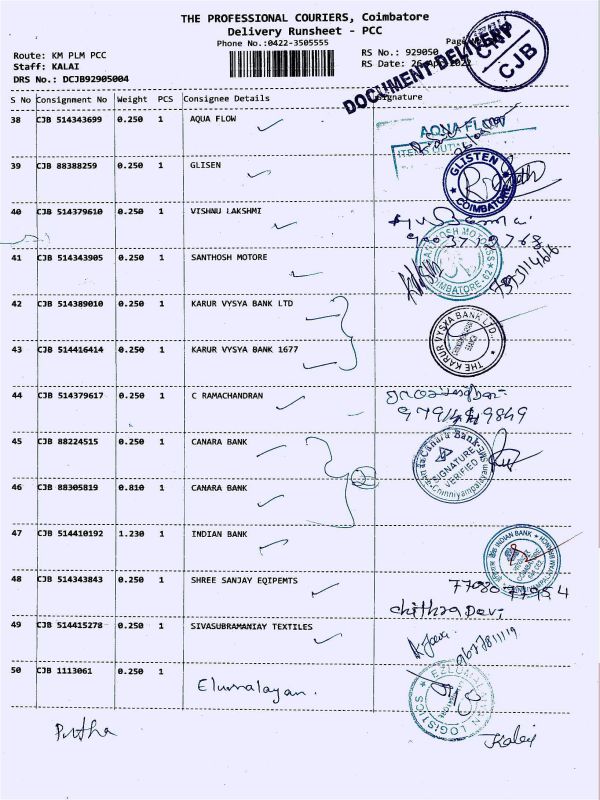 THE PROFESSIONAL COURIERS, Coimbatore
Delivery Runsheet - PCC
Phone No.:0422-3505555
Route: KM PLM PCC
Staff: KALAI
DRS No.: DCJB92905004
RS No.: 929050
RS Date: 26
DOCUMENT DELIVERY
CJB
S No Consignment No Weight PCS Consignee Details
38 CJB 514343699 0.250 1 AQUA FLOW
AQNA FLOW
39 CJB 88388259 0.250 1 GLISEN
GLISTEN
COIMBATORE
40 CJB 514379610 0.250 1 VISHNU LAKSHMI
41 CJB 514343905 0.250 1 SANTHOSH MOTORE
42 CJB 514389010 0.250 1 KARUR VYSYA BANK LTD
43 CJB 514416414 0.250 1 KARUR VYSYA BANK 1677
THE KARUR VYSYA BANK LTD.
44 CJB 514379617 0.250 1 C RAMACHANDRAN
45 CJB 88224515 0.250 1 CANARA BANK
Canara Bank
SIGNATURE
VERIFIED
46 CJB 88305819 0.810 1 CANARA BANK
47 CJB 514410192 1.230 1 INDIAN BANK
INDIAN BANK
48 CJB 514343843 0.250 1 SHREE SANJAY EQIPEMTS
Chithra Devi
49 CJB 514415278 0.250 1 SIVASUBRAMANIAY TEXTILES
9677811119
50 CJB 1113061 0.250 1 Elumalayan.
LOGISTICS
Kalai